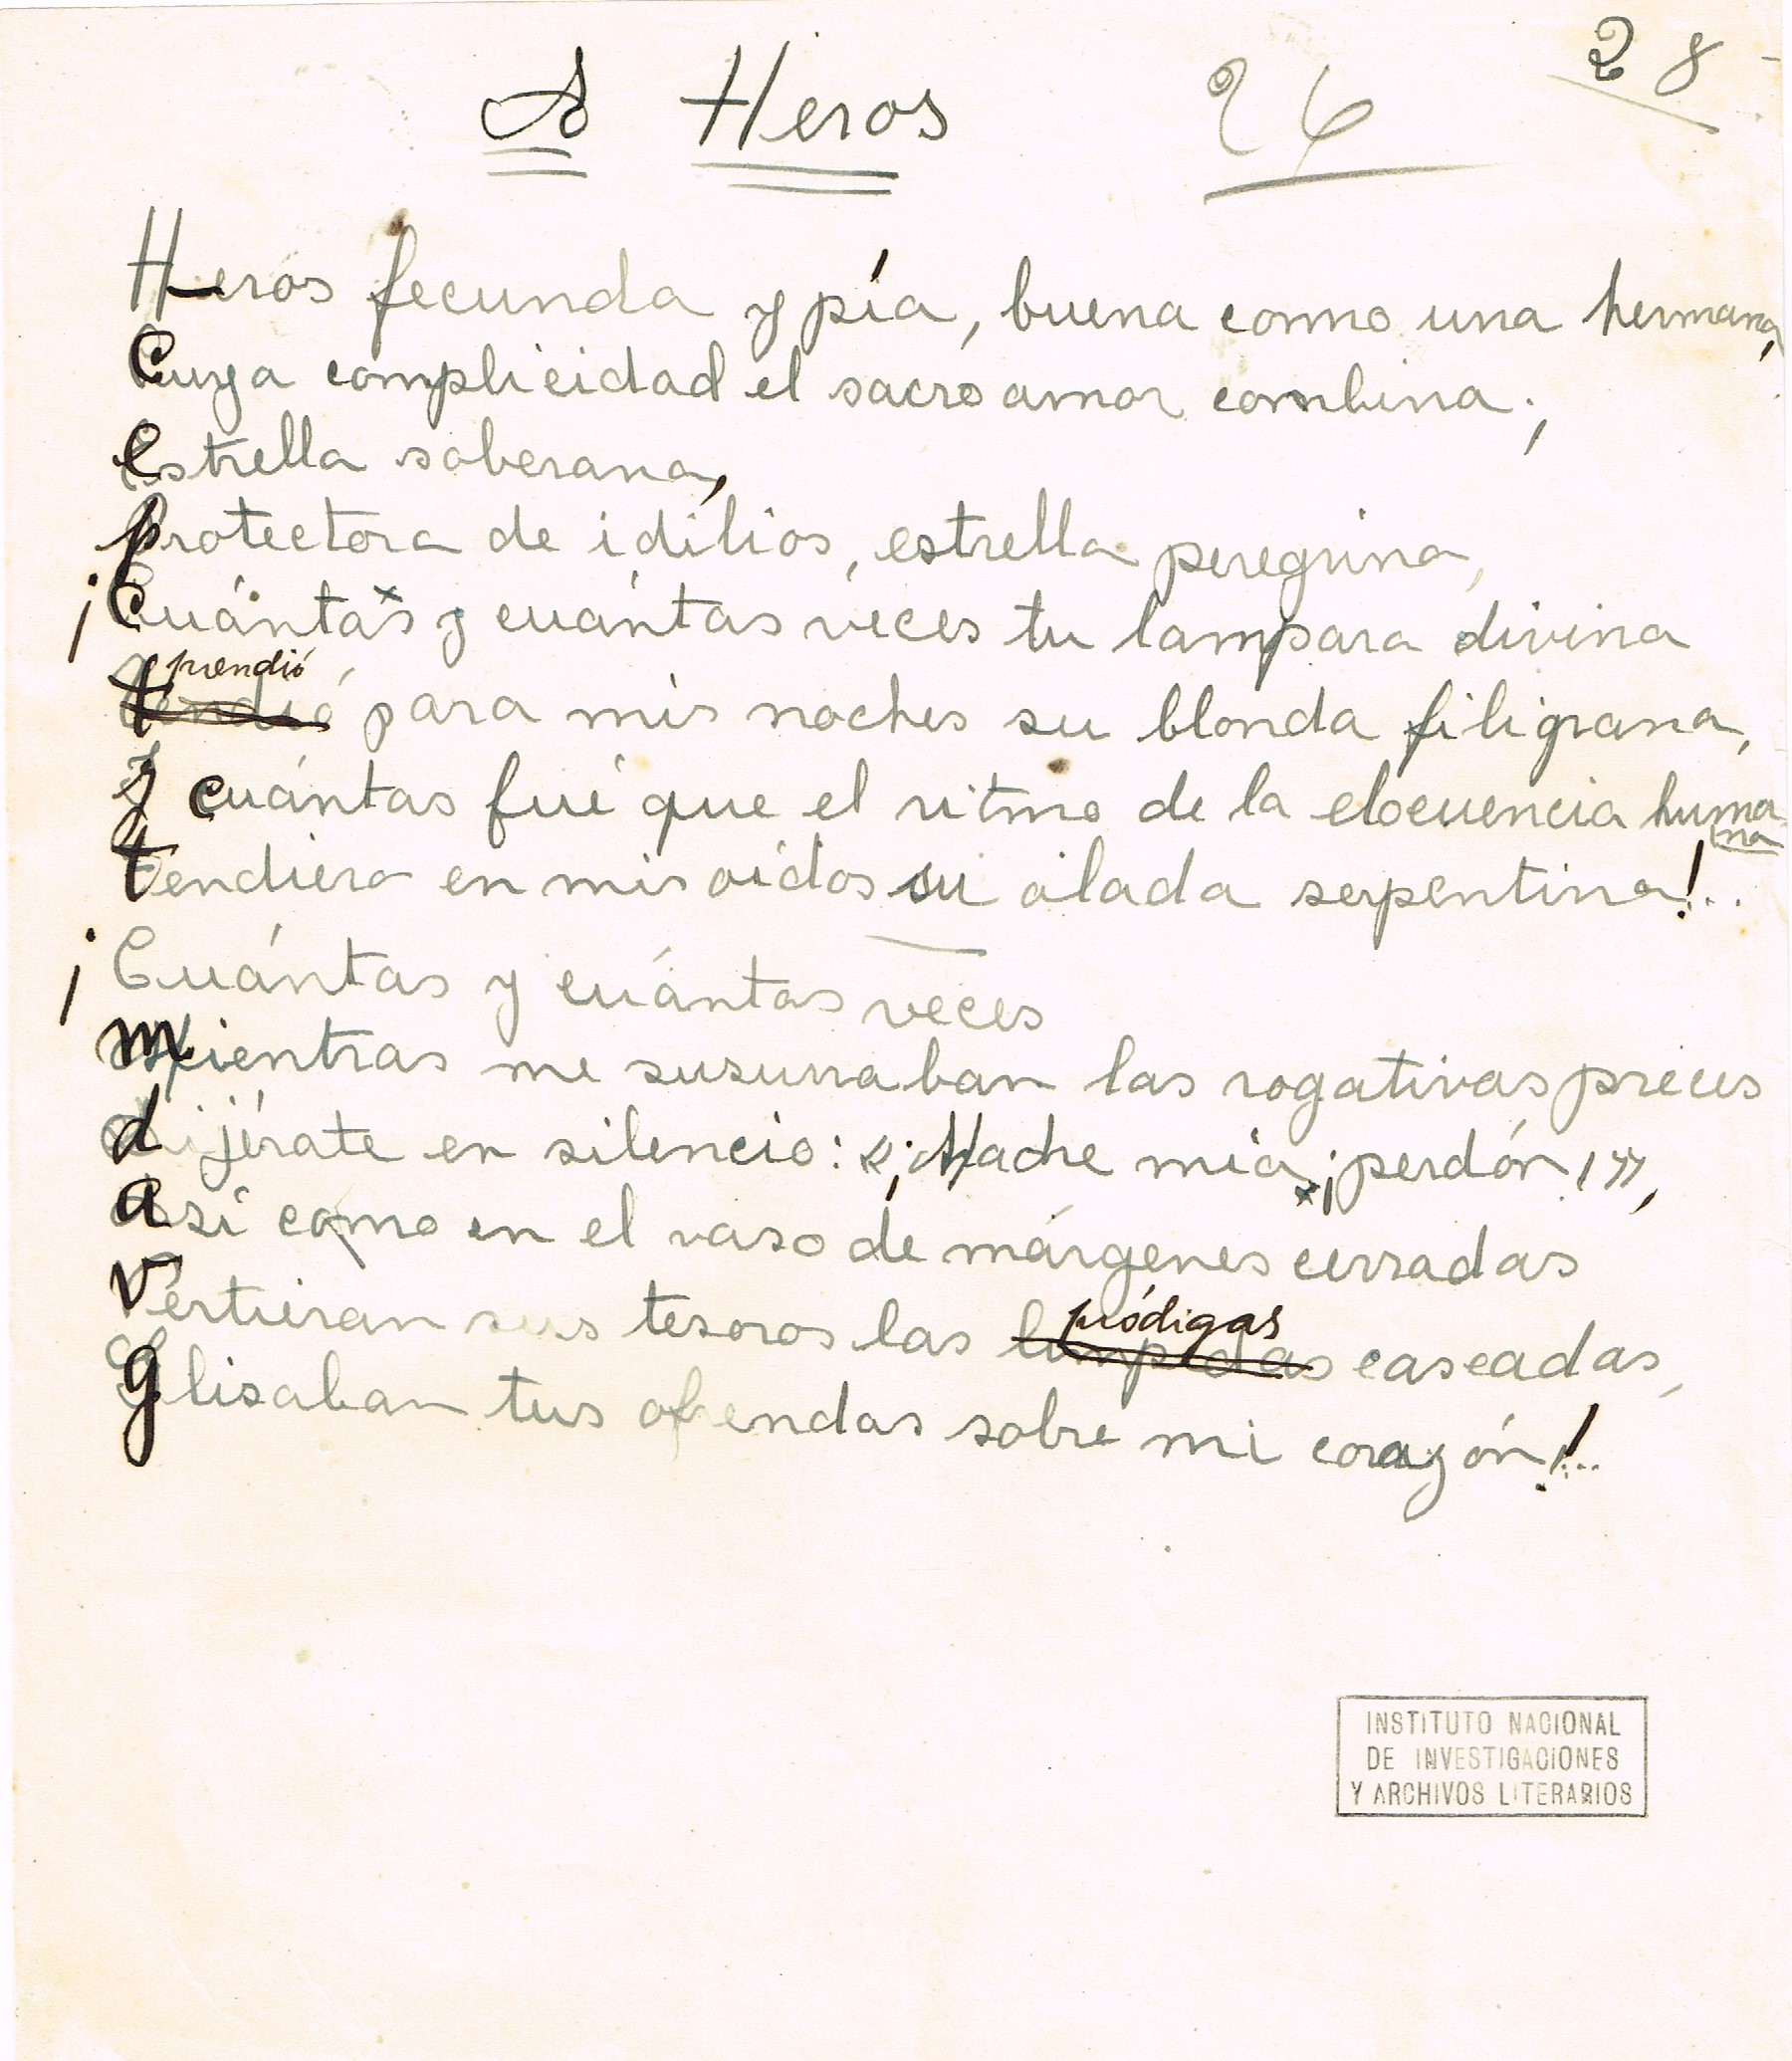 A Heros 26 28
Heros fecunda y pía, buena como una hermana,
cuya complicidad el sacro amor combina;
estrella soberana,
protectora de idilios, estrella peregrina,
¡Cuántas y cuántas veces tu lampara divina
prendió
tendió para mis noches su blonda filigrana,
y cuántas fué que el ritmo de la elocuencia humana
tendiera en mis oídos su alada serpentina!...
¡Cuántas y cuántas veces
mientras me susurraban las rogativas preces
dijérate en silencio: «¡Madre mía, ¡perdón!»,
así como en el vaso de márgenes cerradas
vertieran sus tesoros las límpidas cascadas,
pródigas
glisaban tus ofrendas sobre mi corazón!...
INSTITUTO NACIONAL
DE INVESTIGACIONES
Y ARCHIVOS LITERARIOS